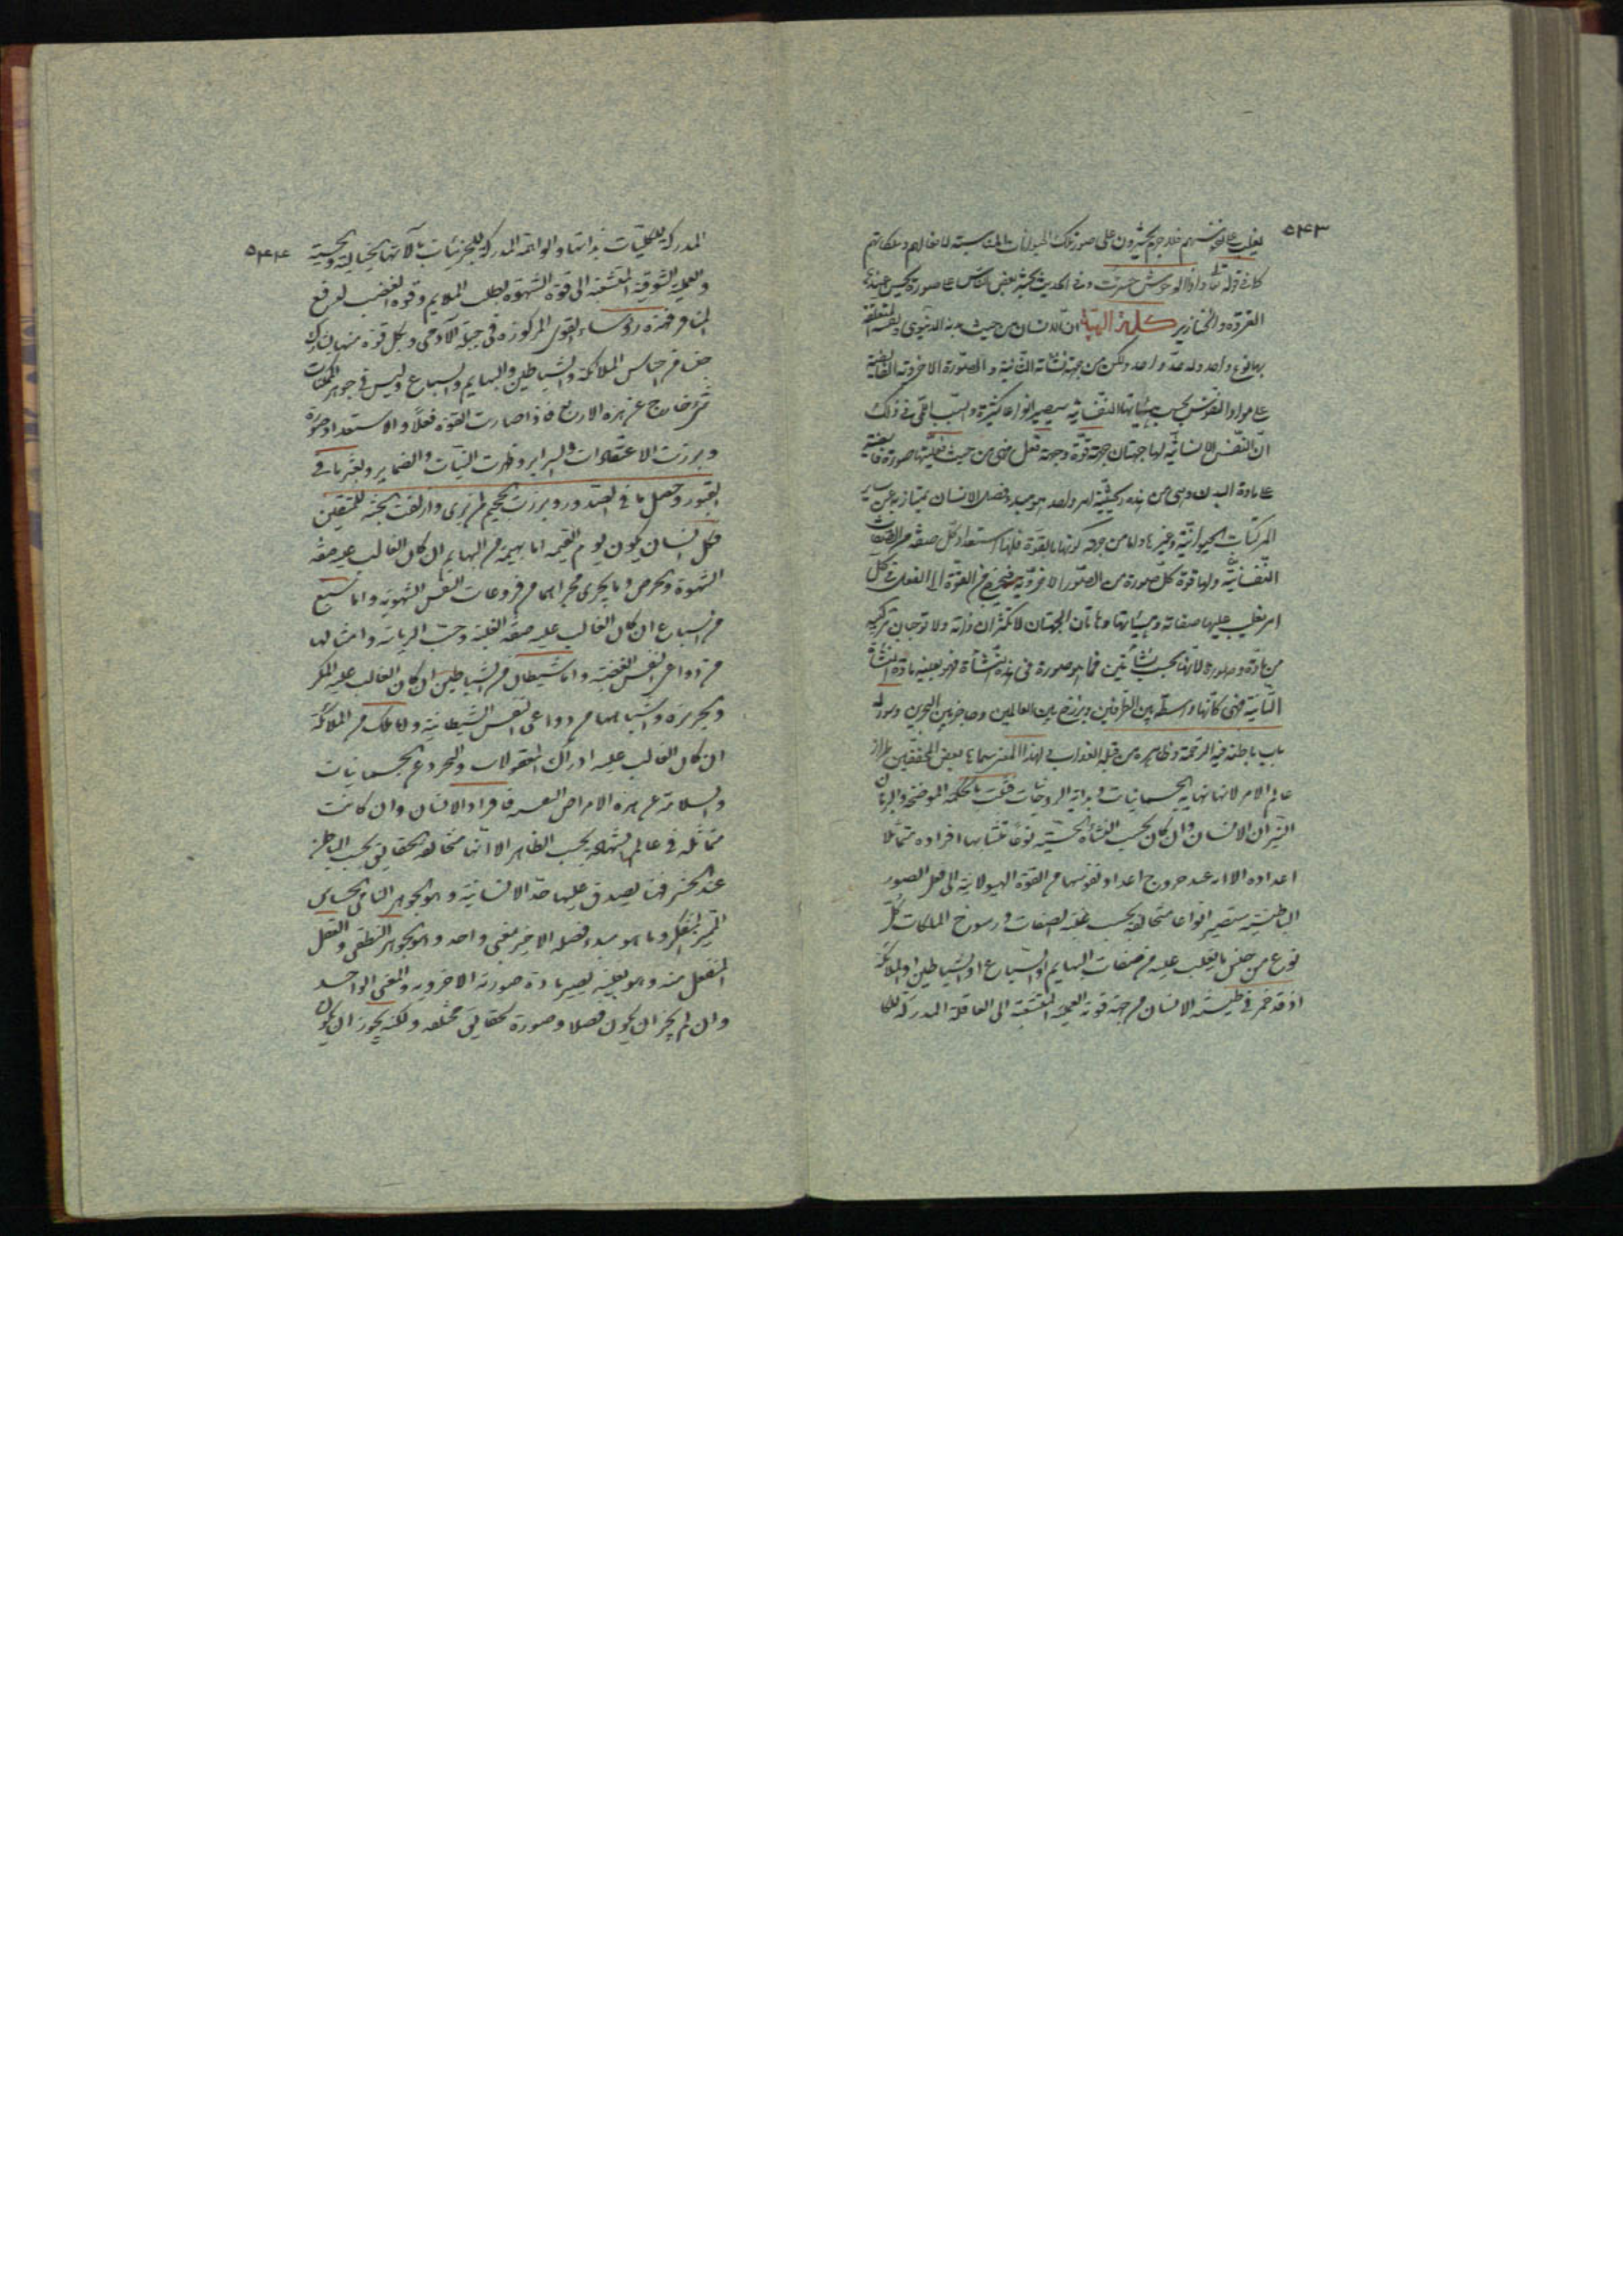 ٥٤٣
يغلب على نفوسهم فلا جرم يحشرون على صور تلك الحيوانات المناسبة لافعالهم وملكاتهم
كما في قوله تعالى واذا الوحوش حشرت وفي الحديث يحشر بعض الناس على صورة يحسن عندها
القردة والخنازير كلمة الهية ان الانسان من حيث بدنه الدنيوي ونفسه المتعلقة
بها نوع واحد وله حد واحد ولكن من جهة نشأته الثانية والصورة الاخروية الفايضة
على مواد النفوس بحسب هيئاتها النفسانية سيصير انواعا كثيرة والسبب اللمي في ذلك
ان النفس الانسانية لها جهتان جهة قوة وجهة فعل فهي من حيث فعليتها صورة فايضة
على مادة البدن وهي من هذه الحيثية امر واحد هو مبدء فصل الانسان يمتاز به عن ساير
المركبات الحيوانية وغيرها واما من جهة كونها بالقوة فلها استعداد كل صفة من الصفات
النفسانية ولها قوة كل صورة من الصور الاخروية فيخرج من القوة الى الفعل في كل
امر يغلب عليها صفاته وهيئاتها وهاتان الجهتان لا تكثران ذاته ولا توجبان تركبه
من مادة وصورة لانهما بحسب نشأتين فما هو صورة في هذه النشأة فهو بعينه مادة النشأة
الثانية فهي كأنها واسطة بين الطرفين وبرزخ بين العالمين وحاجز بين البحرين وسور له
باب باطنه فيه الرحمة وظاهره من قبله العذاب لهذا المعنى سماها بعض المحققين طراز
عالم الامر لانها نهاية الجسمانيات وبداية الروحانيات فثبت بالحكمة الموضحة والبرهان
النير ان الانسان وان كان بحسب النشأة الحسية نوعا متشابها افراده متماثلا
اعداده الا انه عند خروج اعداد نفوسها من القوة الهيولانية الى فعل الصور
الباطنية ستصير انواعا متخالفة بحسب غلبة الصفات ورسوخ الملكات كل
نوع من جنس ما يغلب عليه من صفات البهايم او السباع او الشياطين او الملائكة
اذ قد خمر في طينة الانسان من جهة قوته العلمية المنشعبة الى العاقلة المدركة للكا
٥٤٤
المدركة للكليات بذاتها والواهمة المدركة للجزئيات بآلاتها الخيالية والحسية
والعملية الشوقية المنشعبة الى قوة الشهوة لطلب الملايم وقوة الغضب لدفع
المنافر فهذه رؤساء القوى المركوزة في جبلة الآدمي ولكل قوة منها يشارك
جنسا من اجناس الملائكة والشياطين والبهايم والسباع وليس في جوهر الممكنات
شيء خارج عن هذه الاربع فاذا صارت القوة فعلا والاستعداد صورة
وبرزت الاعتقادات والسراير وظهرت النيات والضماير وبعثر ما في
القبور وحصل ما في الصدور وبرزت الجحيم لمن يرى وازلفت الجنة للمتقين
فكل انسان يكون يوم القيمة اما بهيمة من البهايم ان كان الغالب عليه صفة
الشهوة والحرص وما يجري مجراهما من فروعات النفس الشهوية واما سبع
من السباع ان كان الغالب عليه صفة الغلبة وحب الرياسة وامثالها
من دواعي النفس الغضبية واما شيطان من الشياطين ان كان الغالب عليه المكر
والجربزة واشباههما من دواعي النفس الشيطانية واما ملك من الملائكة
ان كان الغالب عليه ادراك المعقولات والتجرد عن الجسمانيات
والسلامة عن هذه الامراض النفسية فافراد الانسان وان كانت
متماثلة في عالم الشهادة بحسب الظاهر الا انها متخالفة الحقايق بحسب الباطن
عند الحشر فهنا يصدق عليها حد الانسانية وهو الجوهر النامي الحساس
المميز المتفكر وما هو مبدء فصله الاخير معنى واحد وهو الجوهر النطقي والعقل
المنفعل منه وهو بعينه يصير مادة صورته الاخروية والمعنى الواحد
وان لم يجز ان يكون فصلا وصورة لحقايق مختلفة ولكنه يجوز ان يكون